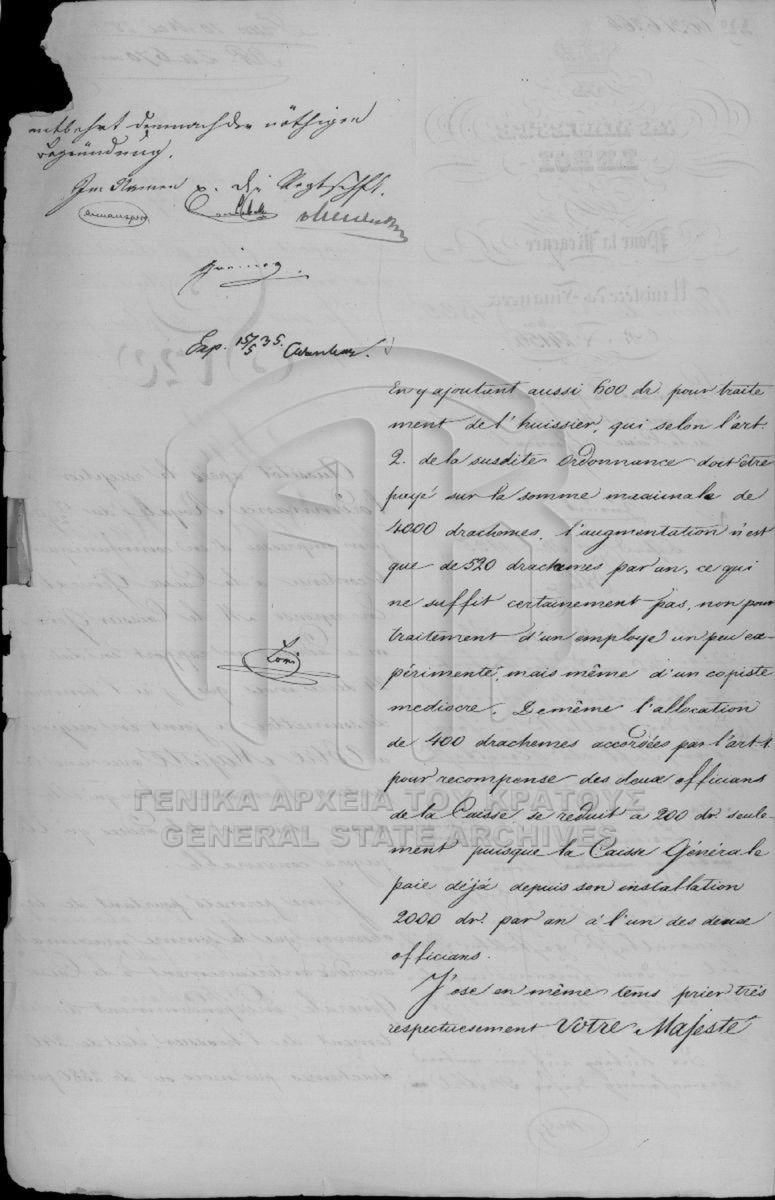 entbehrt demnach der nöthigen
Begründung.
Im Namen der Regtschft.
Armansperg
Exp. 15/5 35.
En y ajoutant aussi 600 dr. pour traite
ment de l'huissier, qui selon l'art.
2. de la susdite Ordonnance doit être
payé sur la somme maximale de
4000 drachmes, l'augmentation n'est
que de 520 drachmes par an, ce qui
ne suffit certainement pas, non pour
traitement d'un employé un peu ex-
périmenté, mais même d'un copiste
mediocre. De même l'allocation
de 400 drachemes accordées par l'art 1
pour recompense des deux officians
de la Caisse se reduit a 200 dr. seule-
ment puisque la Caisse Générale
paie déjà depuis son installation
2000 dr. par an à l'un des deux
officians.
J'ose en même tems prier très
respectuesement Votre Majesté
ΓΕΝΙΚΑ ΑΡΧΕΙΑ ΤΟΥ ΚΡΑΤΟΥΣ
GENERAL STATE ARCHIVES